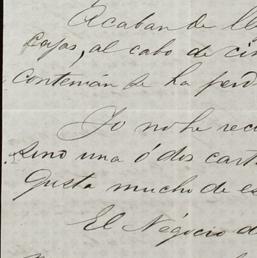 Acaban de lle
cajas, al cabo de cin
contenian se ha perd
Yo no he reci
sino una ó dos cart
gusta mucho de es
El Négocio d